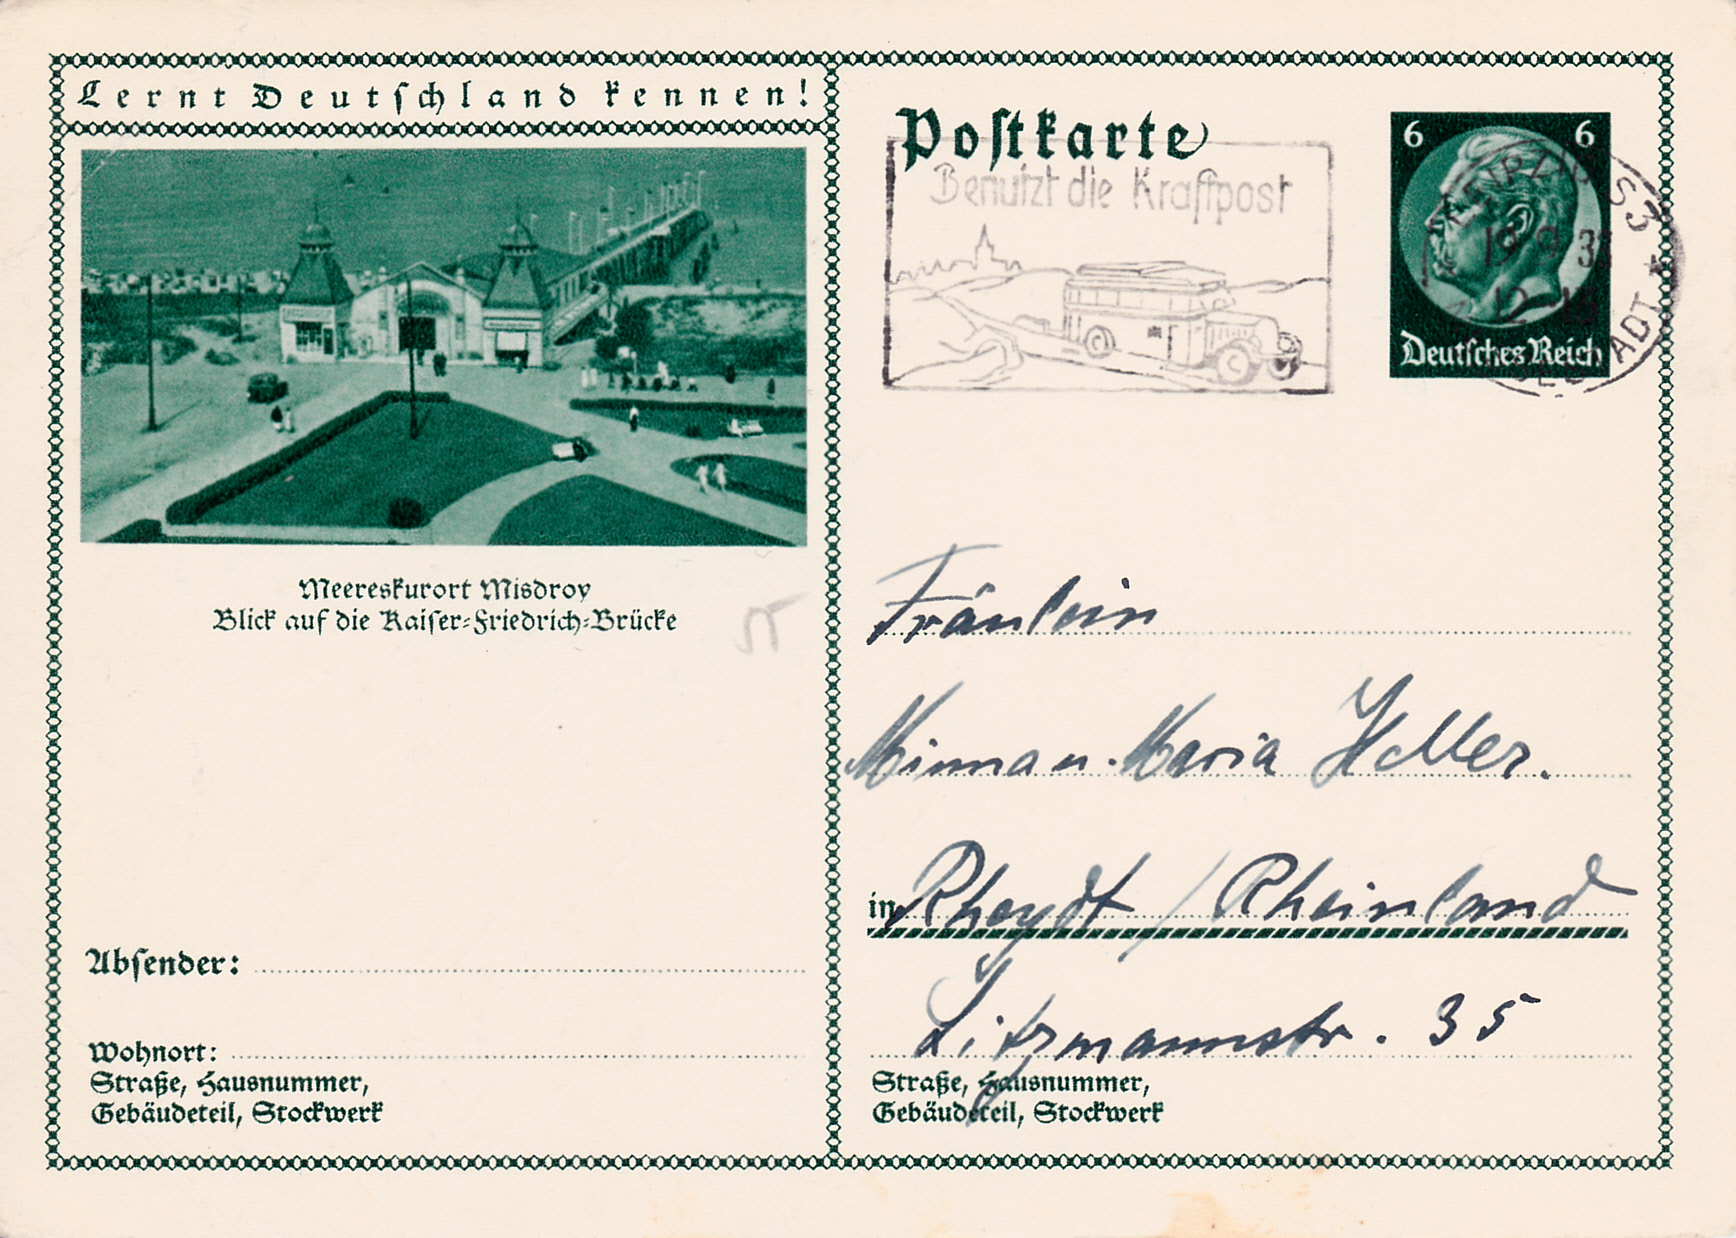 Lernt Deutschland kennen!
Meereskurort Misdroy
Blick auf die Kaiser-Friedrich-Brücke
Absender:
Wohnort:
Straße, Hausnummer,
Gebäudeteil, Stockwerk
Postkarte
Benutzt die Kraftpost
6 6
Deutsches Reich
Fräulein
Minna u. Maria Heller.
in Rheydt / Rheinland
Litzmannstr. 35
Straße, Hausnummer,
Gebäudeteil, Stockwerk